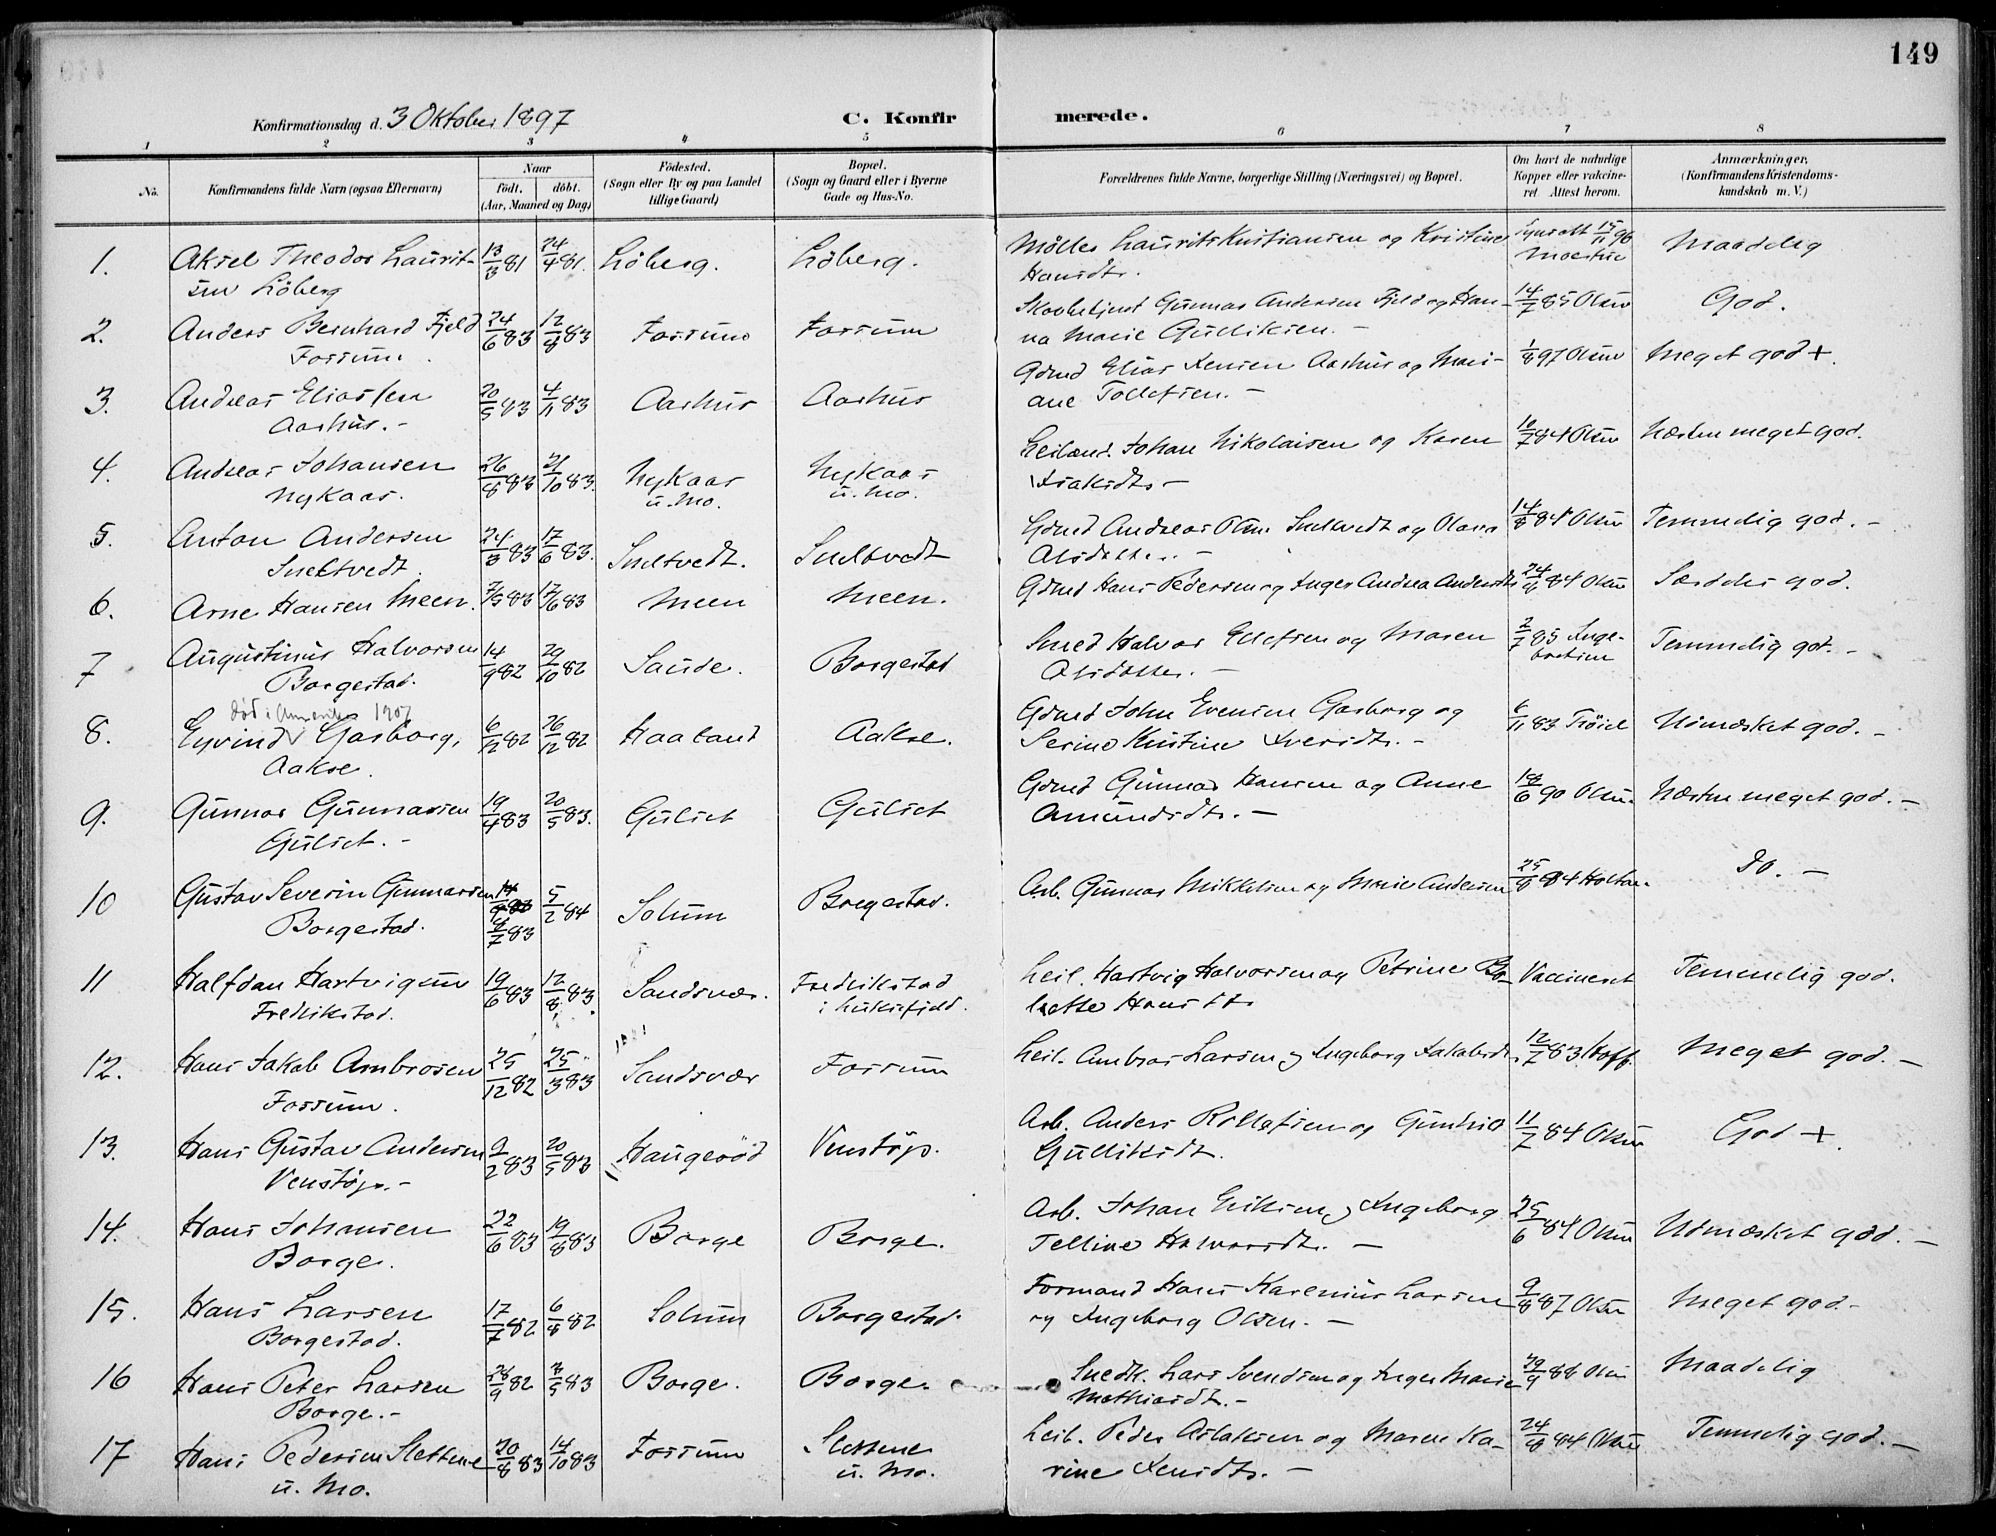 149
Konfirmationsdag d. 3 Oktober 1897 C. Konfir merede.
1 2 3 4 5 6 7 8
No. Konfirmandens fulde Navn (ogsaa Efternavn) Naar født. døbt. (Aar, Maaned og Dag)
Fødested. (Sogn eller By og paa Landet tillige Gaard)
Bopæl. (Sogn og Gaard eller i Byerne Gade og Hus-No.
Forældrenes fulde Navne, borgerlige Stilling (Næringsvei) og Bopæl.
Om havt de naturlige Kopper eller vakcineret. Attest herom.
Anmærkninger. (Konfirmandens Kristendomskundskab m. V.)
1. Aksel Theodor Laurit- 13/3 81 24/4 81. Löberg. Löberg. Møller Laurits Kristiansen og Kristine 15/11 96 Maadelig
sen Löberg Hansdtr.
2. Anders Bernhard Fjeld 24/6 83 12/8 83 Fossum Fossum Gunnar Andersen Fjeld og Han- 14/7 85 Olsen God.
Fossum. na Marie Gulliksen. -
3. Andreas Eliassen 20/5 83 4/11 83 Aarhus Aarhus Gdmd Elias Jensen Aarhus og Mari- 1/8 97 Olsen Meget god +.
Aarhus. - ane Tollefsen. -
4. Andreas Johansen 26/8 83 21/10 83. Nykaas Nykaas Leilænd. Johan Nikolaisen og Karen 10/7 84 Olsen Næsten meget god.
Nykaas. u. Mo. u. Mo. Isaksdtr. -
5. Anton Andersen 24/3 83 17/6 83. Sneltvedt. Sneltvedt Gdmd Andreas Olsen Sneltvedt og Olava 14/8 84 Olsen Temmelig god. -
Sneltvedt. Olsdatter. -
6. Arne Hansen Meen. 7/5 83 17/6 83 Meen Meen. Gdmd Hans Pedersen og Inger Andrea Andersdtr 24/8 84 Olsen Særdeles god.
7 Augustinus Halvorsen 14/9 82 29/10 82 Saude. Borgestad Smed Halvor Ellefsen og Maren 2/7 85 Inge- Temmelig god. -
Borgestad. Olsdatter. - bretsen
død i Amerika 1907
8. Eyvind Garborg, 6/12 82 26/12 82 Haaland Aakre. Gdmd John Evensen Garborg og 6/11 83 Udmærket god. -
Aakre. Serine Kristine Iversdtr. -
9. Gunnar Gunnarsen 19/4 83 20/5 83. Gulset Gulset Gdmd Gunnar Hansen og Anne 18/6 90 Olsen. Næsten meget god. -
Gulset. - Amundsdtr. -
10 Gustav Severin Gunnarsen 5/2 84 Solum Borgestad. Arb. Gunnar Mikkelsen og Maria Andersen 25/8 84 Holtan. do. -
Borgestad. 4/7 83
11 Halfdan Hartvigsen 19/6 83 12/8 83. Sandsvær. Fredrikstad Leil. Hartvig Halvorsen og Petrine Bo- Vaccineret Temmelig god.
Fredrikstad. i Luksefjeld. lette Hansdtr
12. Hans Jakob Ambrosen 25/12 82 25/3 83 Sandsvær Fossum Leil. Ambros Larsen og Ingeborg Jakobsdtr 12/7 83 Hoff. Meget god. -
Fossum.
13. Hans Gustav Andersen 9/2 83 20/5 83 Haugerød Venstøp. Arb. Anders Rollefsen og Gunhild 11/7 84 Olsen God +.
Venstøp. - Gulliksdt.
14. Hans Johansen 22/6 83 19/8 83 Borge Borge. Arb. Johan Eriksen og Ingeborg 25/6 84 Olsen Udmærket god. -
Borge. Telline Halvorsdtr. -
15. Hans Larsen 17/7 82 6/8 82 Solum Borgestad. Formand Hans Karenius Larsen 9/8 87 Olsen Meget god. -
Borgestad. og Ingeborg Olsen. -
16 Hans Peter Larsen 28/9 82 3/5 83 Borge. Borge. Snedk. Lars Svendsen og Inger Marie 29/9 88 Olsen Maadelig
Borge. - Mathiasdt. -
17 Hans Pedersen Slettene 20/8 83 14/10 83 Fossum Slettene Leil. Peder Aslaksen og Maren Ka- 24/8 84 Olsen Temmelig god. -
u. Mo. u. Mo. rine Jensdtr. -